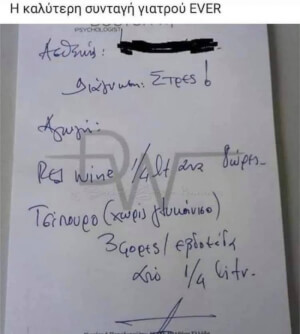 Η καλύτερη συνταγή γιατρού EVER
PSYCHOLOGIST
Ασθενής:
Διάγνωση: ΣΤΡΕΣ!
Αγωγή:
DW
RED wine 1/4 lt ανα δίωρες.
Τσίπουρο (χωρίς γλυκάνισο)
3 φορές / εβδομάδα
από 1/4 litr.